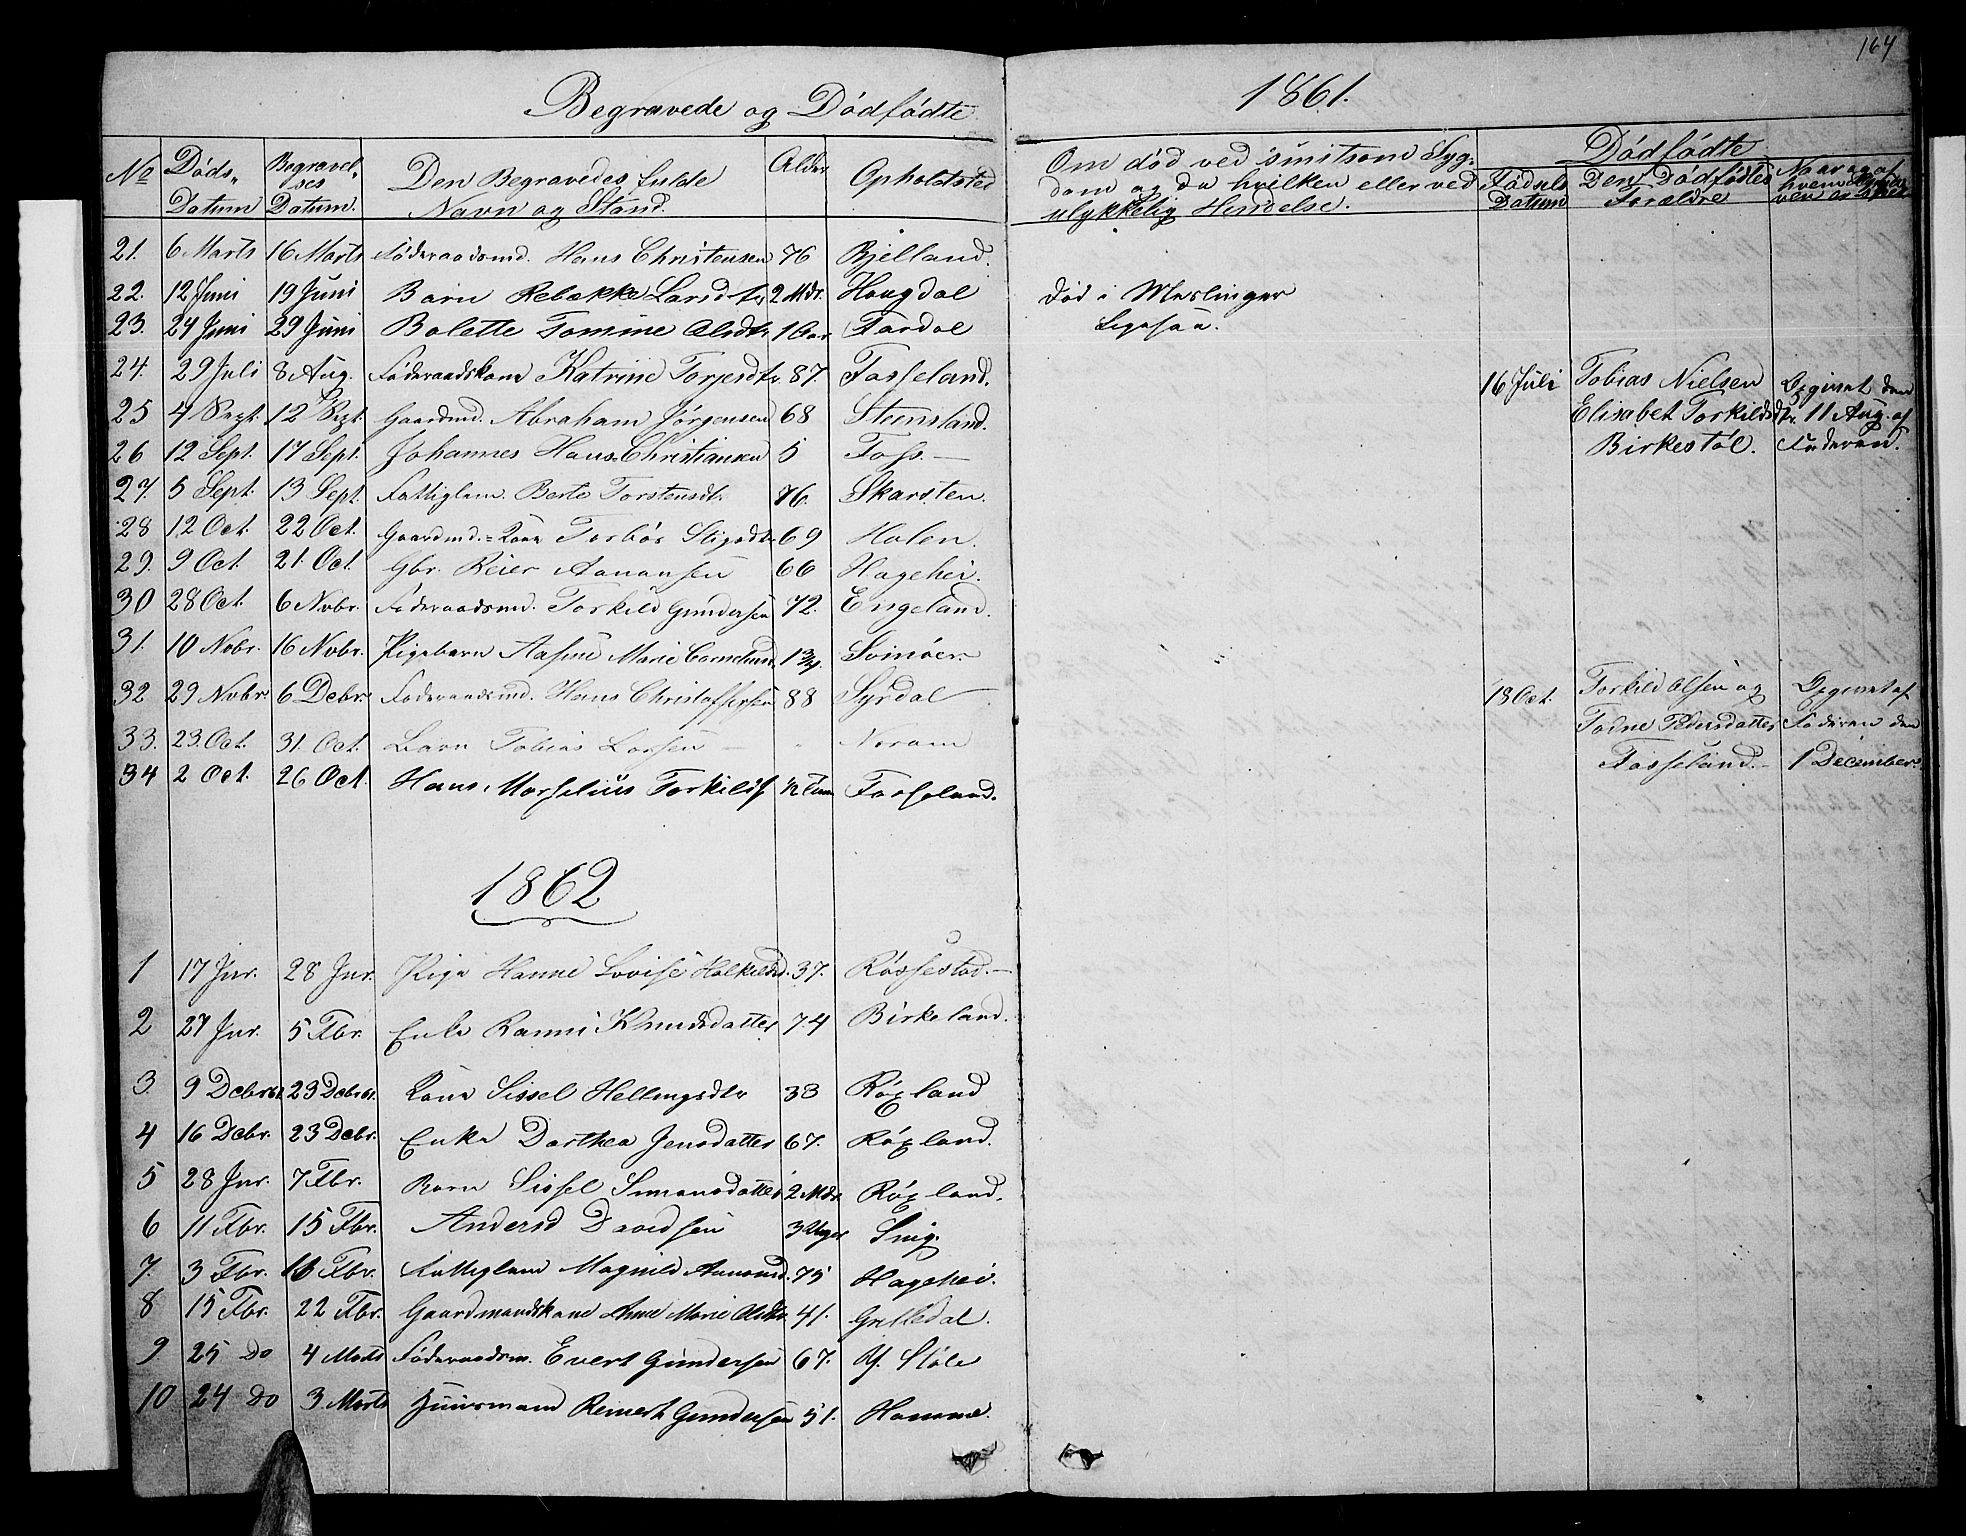 164
Begravede og Dödfödte
1861.
No Döds„ Datum Begravel„ses Datum. Den Begravedes fulde Navn og Stand. Alder Opholdsted
Om död ved smitsom Syg„
dom og da hvilken eller ved
ulykkelig Hendelse.
Dödfödte
Födsels Datum Den Dödfödtes Forældre Naar og af
21. 6 Marts 16 Marts Föderaadsmd. Hans Christensen 76 Bjelland.
22. 12 Juni 19 Juni Barn Rebække Larsdtr 2 Mdr. Hougdal Död i Meslinger
23. 24 Juni 29 Juni Bolette Tomine Olsdtr 1 Aar Fardal Ligesaa.
24. 29 Juli 8 Aug. Föderaadskone Katrine Torjesdtr. 87. Fosseland.
16 Juli Tobias Nielsen
Elisabet Torkildsdtr. 11 Aug. af
Birkestöl. Faderen.
25 4 Sept. 12 Sept. Gaardmd. Abraham Jörgensen 68 Stensland.
26 12 Sept. 17 Sept. Johannes Hans Christiansen 5 Foss. —
27. 5 Sept. 13 Sept. Fattiglem Berte Torstensdt. 76. Skarsten.
28 12 Oct. 22 Oct. Gaardmd.=Kone Torbör Stigsdtr 69 Holen.
29. 9 Oct. 21. Oct. Gbr. Reier Aanansen 66 Hagehei.
30 28 Oct. 6 Novbr. Föderaadsmd. Torkild Gundersen 72. Engeland.
31. 10 Novbr. 16 Novbr. Pigebarn Aasine Marie 1 3/4 Svinöer.
32 29 Novbr. 6 Debr. Föderaadsmd. Hans Christoffersen 88 Syrdal
18 Oct. Torkild Olsen og
Torine Pedersdatter Faderen den
Fosseland. — 1 December.
33. 23. Oct. 31. Oct. Barn Tobias Larsen — „ Noram
34 2 Oct. 26 Oct. Hans Morselius Torkilds. 1/2 Time Fosseland.
1862
1 17 Jnr. 28 Jnr. Pige Hanne Lovise 37. Rössestad. —
2 27 Jnr. 5 Fbr. Enke Ranni Knudsdatter 74 Birkeland.
3. 9 Debr. 61 23 Debr. 61. Kone Sissel Hellingsdtr 33 Röxland
4 16 Debr. 23 Debr. Enke Dorthea Jensdatter 67. Röxland.
5 28 Jnr. 7 Fbr. Barn Sissel Simonsdatter 2 Mdr. Röxland.
6 11 Fbr. 15 Fbr. Anders Davidsen 3 Uger
7. 3 Fbr. 16 Fbr. Fattiglem Magnild 75 Hagehei.
8 15 Fbr. 22 Fbr. Gaardmandskone Anne Marie Olsdtr. 41. Grilledal.
9 25 Do 4 Marts Föderaadsm. Evert Gundersen 67. Y. Stöle
10 24 Do 3 Marts Huusmand Reinert Gundersen 51. Homme.